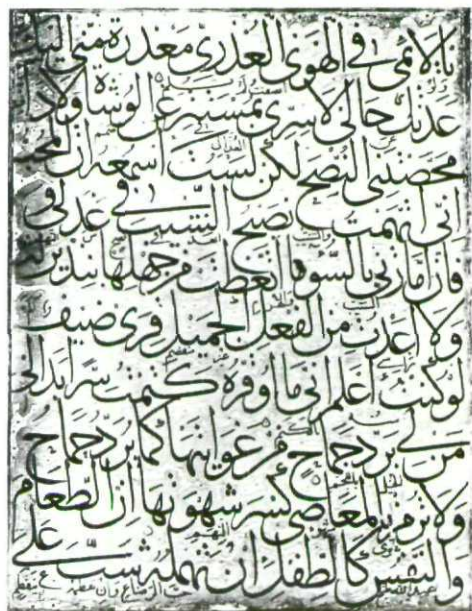 يا لائمي في الهوى العذري معذرة مني اليك
عدتك حالي لا سري بمستتر عن الوشاة ولا
محضتني النصح لكن لست اسمعه ان المحب
اني اتهمت نصيح الشيب في عذلي و
فان امارتي بالسوء ما اتعظت من جهلها بنذير
ولا اعدت من الفعل الجميل قرى ضيف
لو كنت اعلم اني ما اوقره كتمت سرا بدا لي
من لي برد جماح من غوايتها كما يرد جماح
ولا ترم بالمعاصي كسر شهوتها ان الطعام
والنفس كالطفل ان تهمله شب على
حب الرضاع وان تفطمه ينفطم